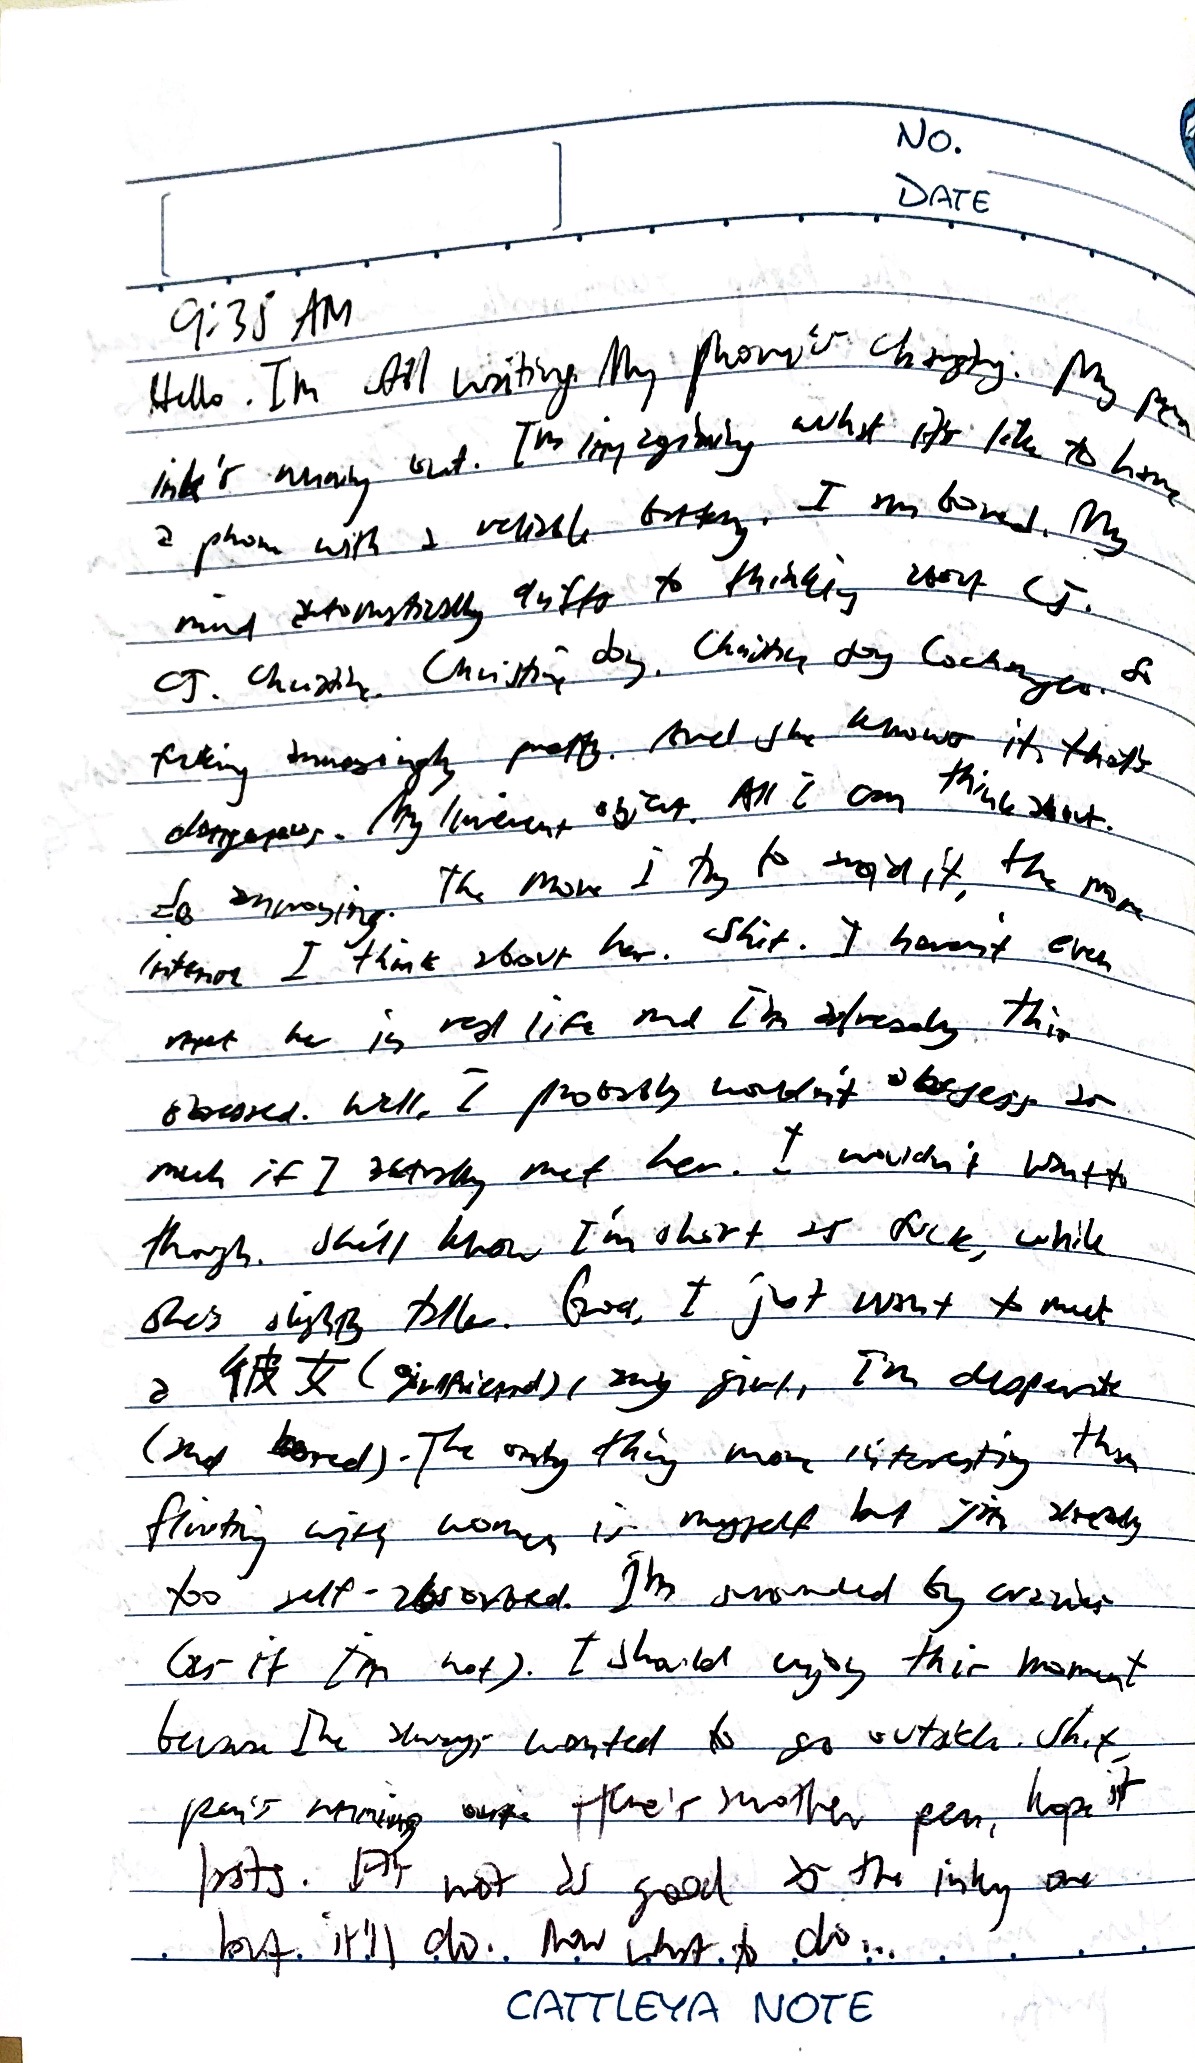 NO.
DATE
9:35 AM
Hello. I'm still writing. My phone's charging. My pen
ink's running out. I'm imagining what it's like to have
a phone with a reliable battery. I am bored. My
mind automatically drifts to thinking about CJ.
CJ. Christine. Christine Joy. Christine Joy So
fucking amazingly pretty. And she knows it, that's
dangerous. My limerent object. All I can think about.
So annoying. The more I try to avoid it, the more
intense I think about her. Shit. I haven't even
met her in real life and I'm already this
obsessed. Well, I probably wouldn't obsess so
much if I actually met her. I wouldn't want to
though. She'll know I'm short as fuck, while
she's slightly taller. God, I just want to meet
a 彼女 (girlfriend), any girl, I'm desperate
(and bored). The only thing more interesting than
flirting with women is myself but I'm already
too self-absorbed. I'm surrounded by crazies
(as if I'm not). I should enjoy this moment
because I've always wanted to go outside. Shit,
pen's running out. Here's another pen, hope it
lasts. It's not as good as the inky one
but it'll do. Now what to do...
CATTLEYA NOTE